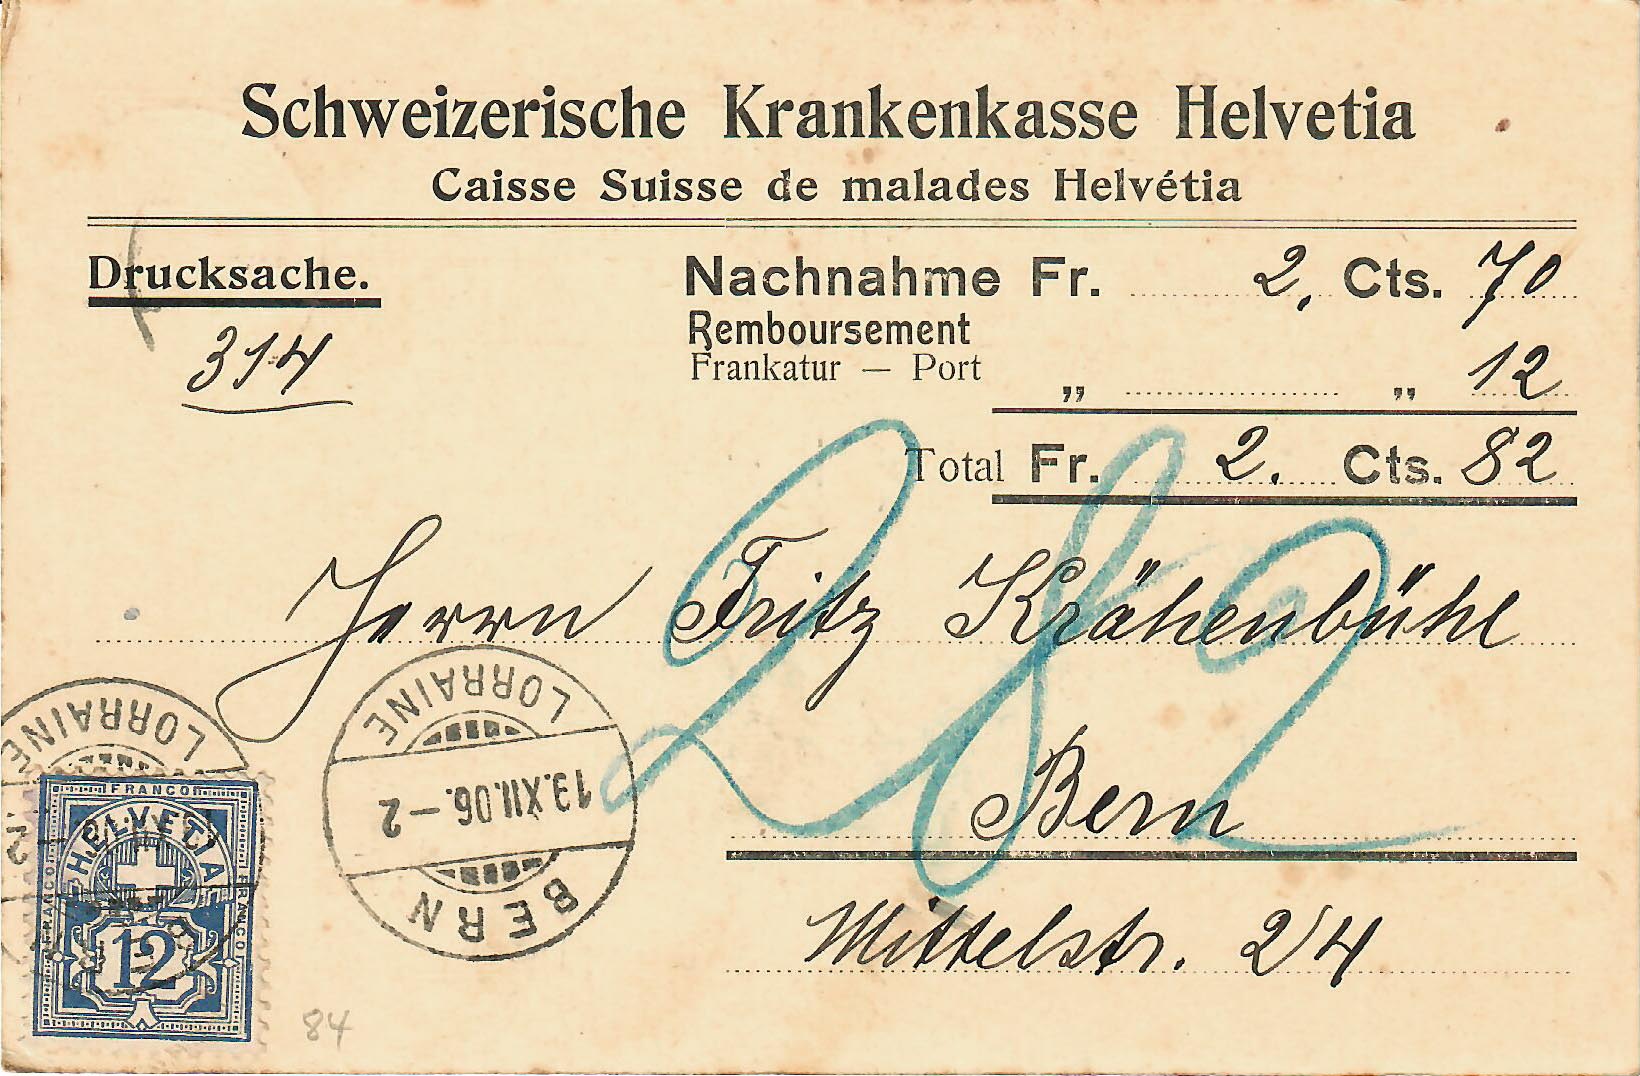 Schweizerische Krankenkasse Helvetia
Caisse Suisse de malades Helvétia
Drucksache.
314
Nachnahme Fr. 2. Cts. 70
Remboursement
Frankatur — Port „ „ 12
Total Fr. 2. Cts. 82
282
Herrn Fritz Krähenbühl
Bern
Mittelstr. 24
BERN
13.XII.06.-2
LORRAINE
LORRAINE
FRANCO
HELVETIA
FRANCO
FRANCO
12
84